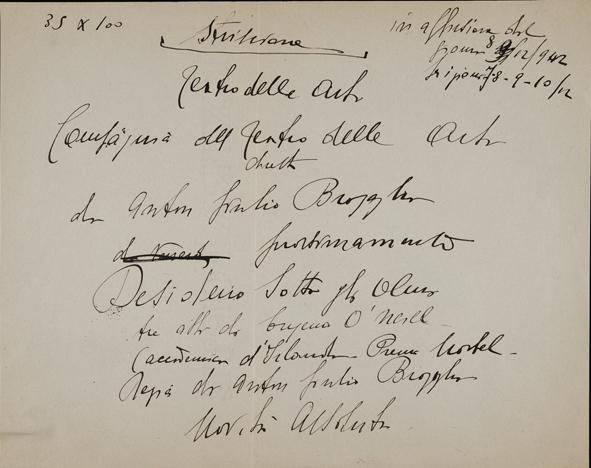 35 x 100
Striscione
in affissione dal
giorno 8/12/942
nei giorni 7-8-9-10/12
Teatro delle Arti
Compagnia del Teatro delle Arti
diretta
da Anton Giulio Bragaglia
prossimamente
Desiderio Sotto gli Olmi
tre atti di Eugenio O'Neill
(accademico d'Irlanda - Premio Nobel -
Regia di Anton Giulio Bragaglia
Novità Assoluta